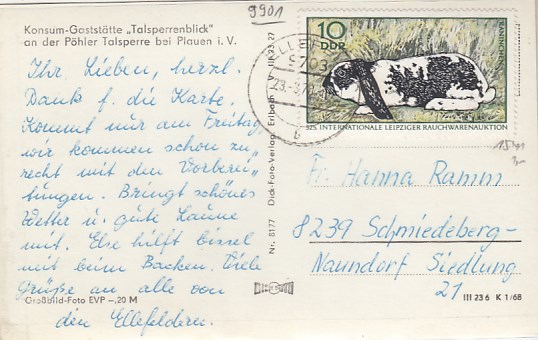 9901
Konsum-Gaststätte „Talsperrenblick"
an der Pöhler Talsperre bei Plauen i. V.
Ihr Lieben, herzl.
Dank f. die Karte.
Kommt nur am Freitag,
wir kommen schon zu„
recht mit den Vorberei„
tungen. Bringt schönes
Wetter u. gute Laune
mit. Else hilft bissel
mit beim Backen. Viele
Grüße an alle von
den Ellefeldern.
Großbild-Foto EVP -,20 M
Nr. 8177 Dick-Foto-Verlag Erlbach i. V. III 23 27
10
DDR
KANINCHEN
525. INTERNATIONALE LEIPZIGER RAUCHWARENAUKTION
ELLEFELD
9703
23.-3.70
b
Fr. Hanna Ramm
8239 Schmiedeberg-
Naundorf Siedlung
21
III 23 6 K 1/68